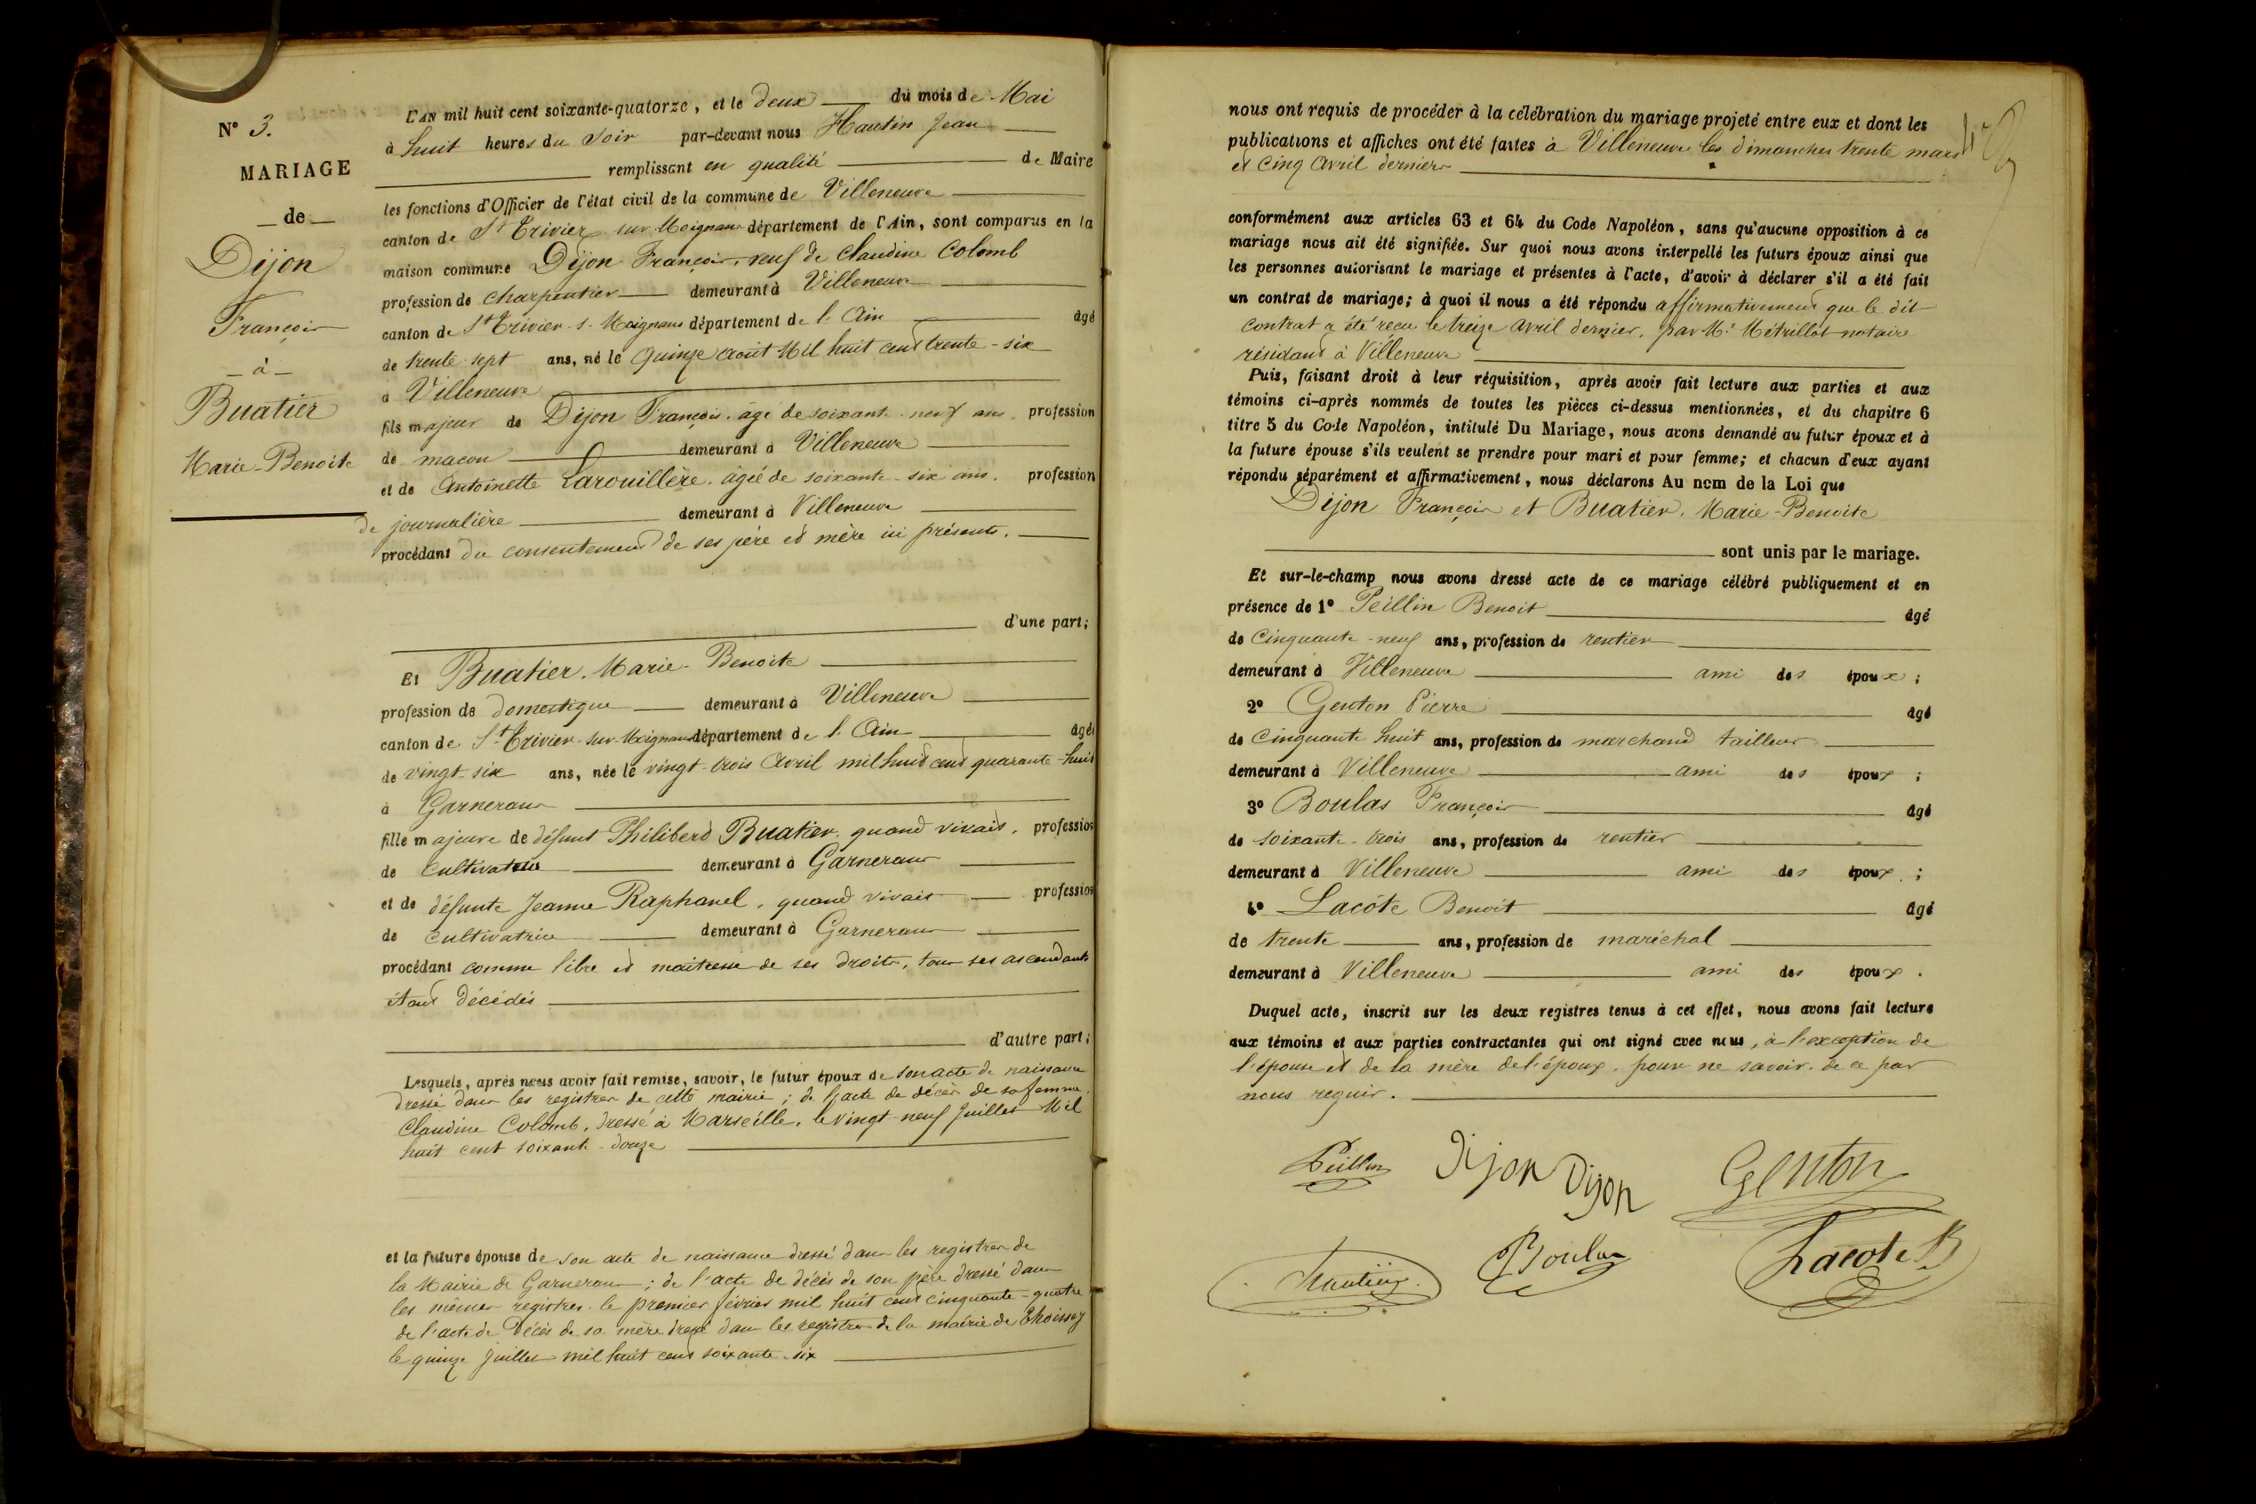 N° 3.
MARIAGE
de
Dijon
François
à
Buatier
Marie-Benoite
L'AN mil huit cent soixante-quatorze, et le deux du mois de Mai
à huit heures du soir par-devant nous Hautin Jean
remplissant en qualité de Maire
les fonctions d'Officier de l'état civil de la commune de Villeneuve
canton de St Trivier sur Moignans département de l'Ain, sont comparus en la
maison commune Dijon François, veuf de Claudine Colomb
profession de charpentier demeurant à Villeneuve
canton de St Trivier s. Moignans département de l'Ain âgé
de trente sept ans, né le quinze août Mil huit cent trente-six
à Villeneuve
fils majeur de Dijon François, âgé de soixante-neuf ans, profession
de maçon demeurant à Villeneuve
et de Antoinette Larouillère, âgée de soixante-six ans, profession
de journalière demeurant à Villeneuve
procédant du consentement de ses père et mère ici présents,
d'une part;
Et Buatier, Marie-Benoite
profession de domestique demeurant à Villeneuve
canton de St Trivier-sur-Moignans département de l'Ain âgée
de vingt-six ans, née le vingt-trois Avril mil huit cent quarante-huit
à Garnerans
fille majeure de défunt Philiberd Buatier, quand vivait, profession
de cultivateur demeurant à Garnerans
et de défunte Jeanne Raphanel, quand vivait profession
de cultivatrice demeurant à Garnerans
procédant comme libre et maîtresse de ses droits, tous ses ascendants
étant décédés
d'autre part;
Lesquels, après nous avoir fait remise, savoir, le futur époux de son acte de naissance
dressé dans les registres de cette mairie; de l'acte de décès de sa femme
Claudine Colomb, dressé à Marseille, le vingt-neuf Juillet Mil
huit cent soixante-douze
et la future épouse de son acte de naissance dressé dans les registres de
la Mairie de Garnerans; de l'acte de décès de son père dressé dans
les mêmes registres le premier février mil huit cent cinquante-quatre
de l'acte de décès de sa mère dressé dans les registres de la mairie de Thoissey
le quinze Juillet mil huit cent soixante-six
nous ont requis de procéder à la célébration du mariage projeté entre eux et dont les
publications et affiches ont été faites à Villeneuve les dimanches trente mars
et cinq Avril derniers
conformément aux articles 63 et 64 du Code Napoléon, sans qu'aucune opposition à ce
mariage nous ait été signifiée. Sur quoi nous avons interpellé les futurs époux ainsi que
les personnes autorisant le mariage et présentes à l'acte, d'avoir à déclarer s'il a été fait
un contrat de mariage; à quoi il nous a été répondu affirmativement que le dit
contrat a été reçu le treize avril dernier, par Me Métrillot notaire
résidant à Villeneuve
Puis, faisant droit à leur réquisition, après avoir fait lecture aux parties et aux
témoins ci-après nommés de toutes les pièces ci-dessus mentionnées, et du chapitre 6
titre 5 du Code Napoléon, intitulé Du Mariage, nous avons demandé au futur époux et à
la future épouse s'ils veulent se prendre pour mari et pour femme; et chacun d'eux ayant
répondu séparément et affirmativement, nous déclarons Au nom de la Loi que
Dijon François et Buatier, Marie-Benoite
sont unis par le mariage.
Et sur-le-champ nous avons dressé acte de ce mariage célébré publiquement et en
présence de 1° Peillin Benoit âgé
de cinquante-neuf ans, profession de rentier
demeurant à Villeneuve ami des époux;
2° Genton Pierre âgé
de cinquante huit ans, profession de marchand tailleur
demeurant à Villeneuve ami des époux;
3° Boulas François âgé
de soixante-trois ans, profession de rentier
demeurant à Villeneuve ami des époux;
4° Lacôte Benoit âgé
de trente ans, profession de maréchal
demeurant à Villeneuve ami des époux.
Duquel acte, inscrit sur les deux registres tenus à cet effet, nous avons fait lecture
aux témoins et aux parties contractantes qui ont signé avec nous, à l'exception de
l'épouse et de la mère de l'époux, pour ne savoir, de ce par
nous requis.
Peillin Dijon Dijon Genton
Hautin Boulas Lacote B